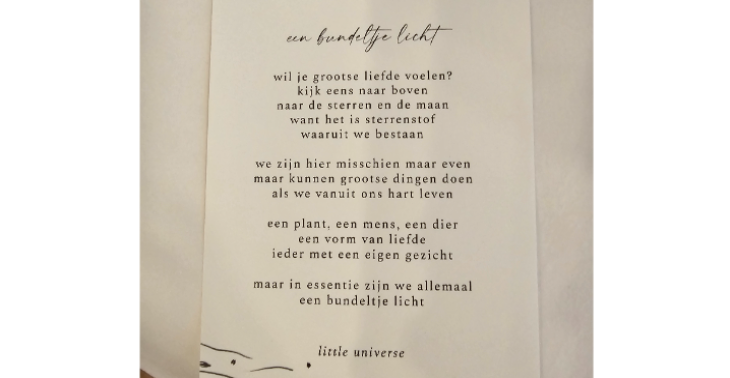 een bundeltje licht
wil je grootse liefde voelen?
kijk eens naar boven
naar de sterren en de maan
want het is sterrenstof
waaruit we bestaan
we zijn hier misschien maar even
maar kunnen grootse dingen doen
als we vanuit ons hart leven
een plant, een mens, een dier
een vorm van liefde
ieder met een eigen gezicht
maar in essentie zijn we allemaal
een bundeltje licht
little universe